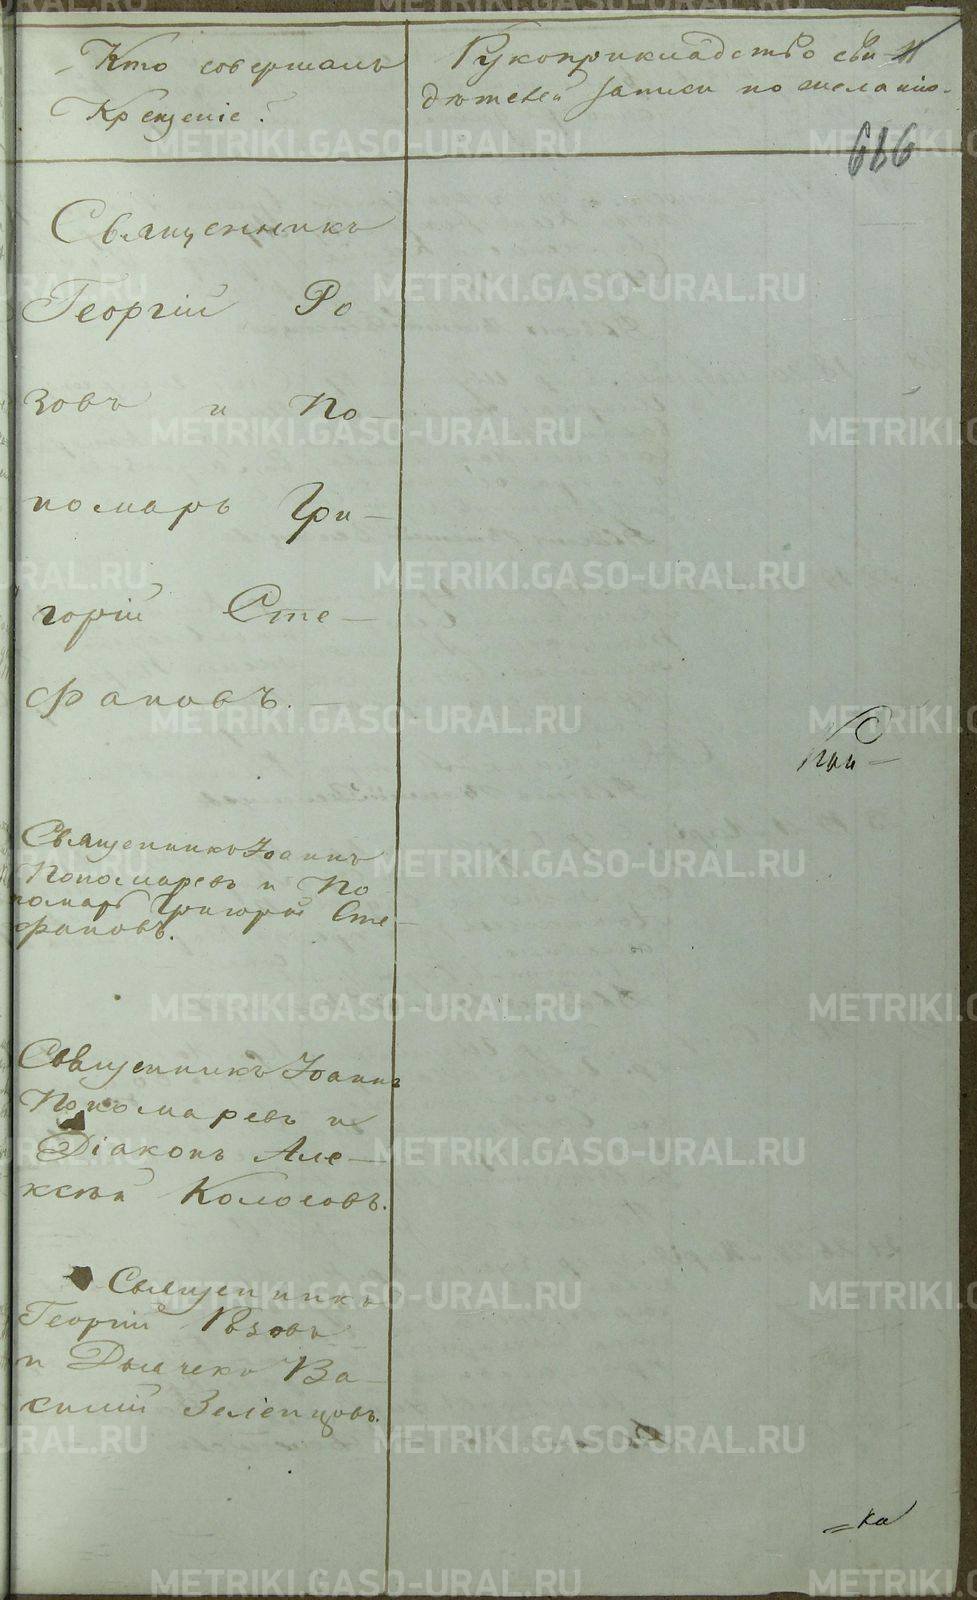 Кто совершалъ
Крещеніе.
Рукоприкладство сви
дѣтелей записи по желанію.
686
Священникъ
Георгій Ро
зовъ и По
номарь Гри-
горій Сте-
фановъ.
Священникъ Іоаннъ
Пономаревъ и По
номарь Григорій Сте-
фановъ.
Священникъ Іоаннъ
Пономаревъ и
Діаконъ Але-
ксѣй Колосовъ.
Священникъ
Георгій Розовъ
и Дьячекъ Ва-
силій Зеленцовъ.
=ка
METRIKI.GASO-URAL.RU